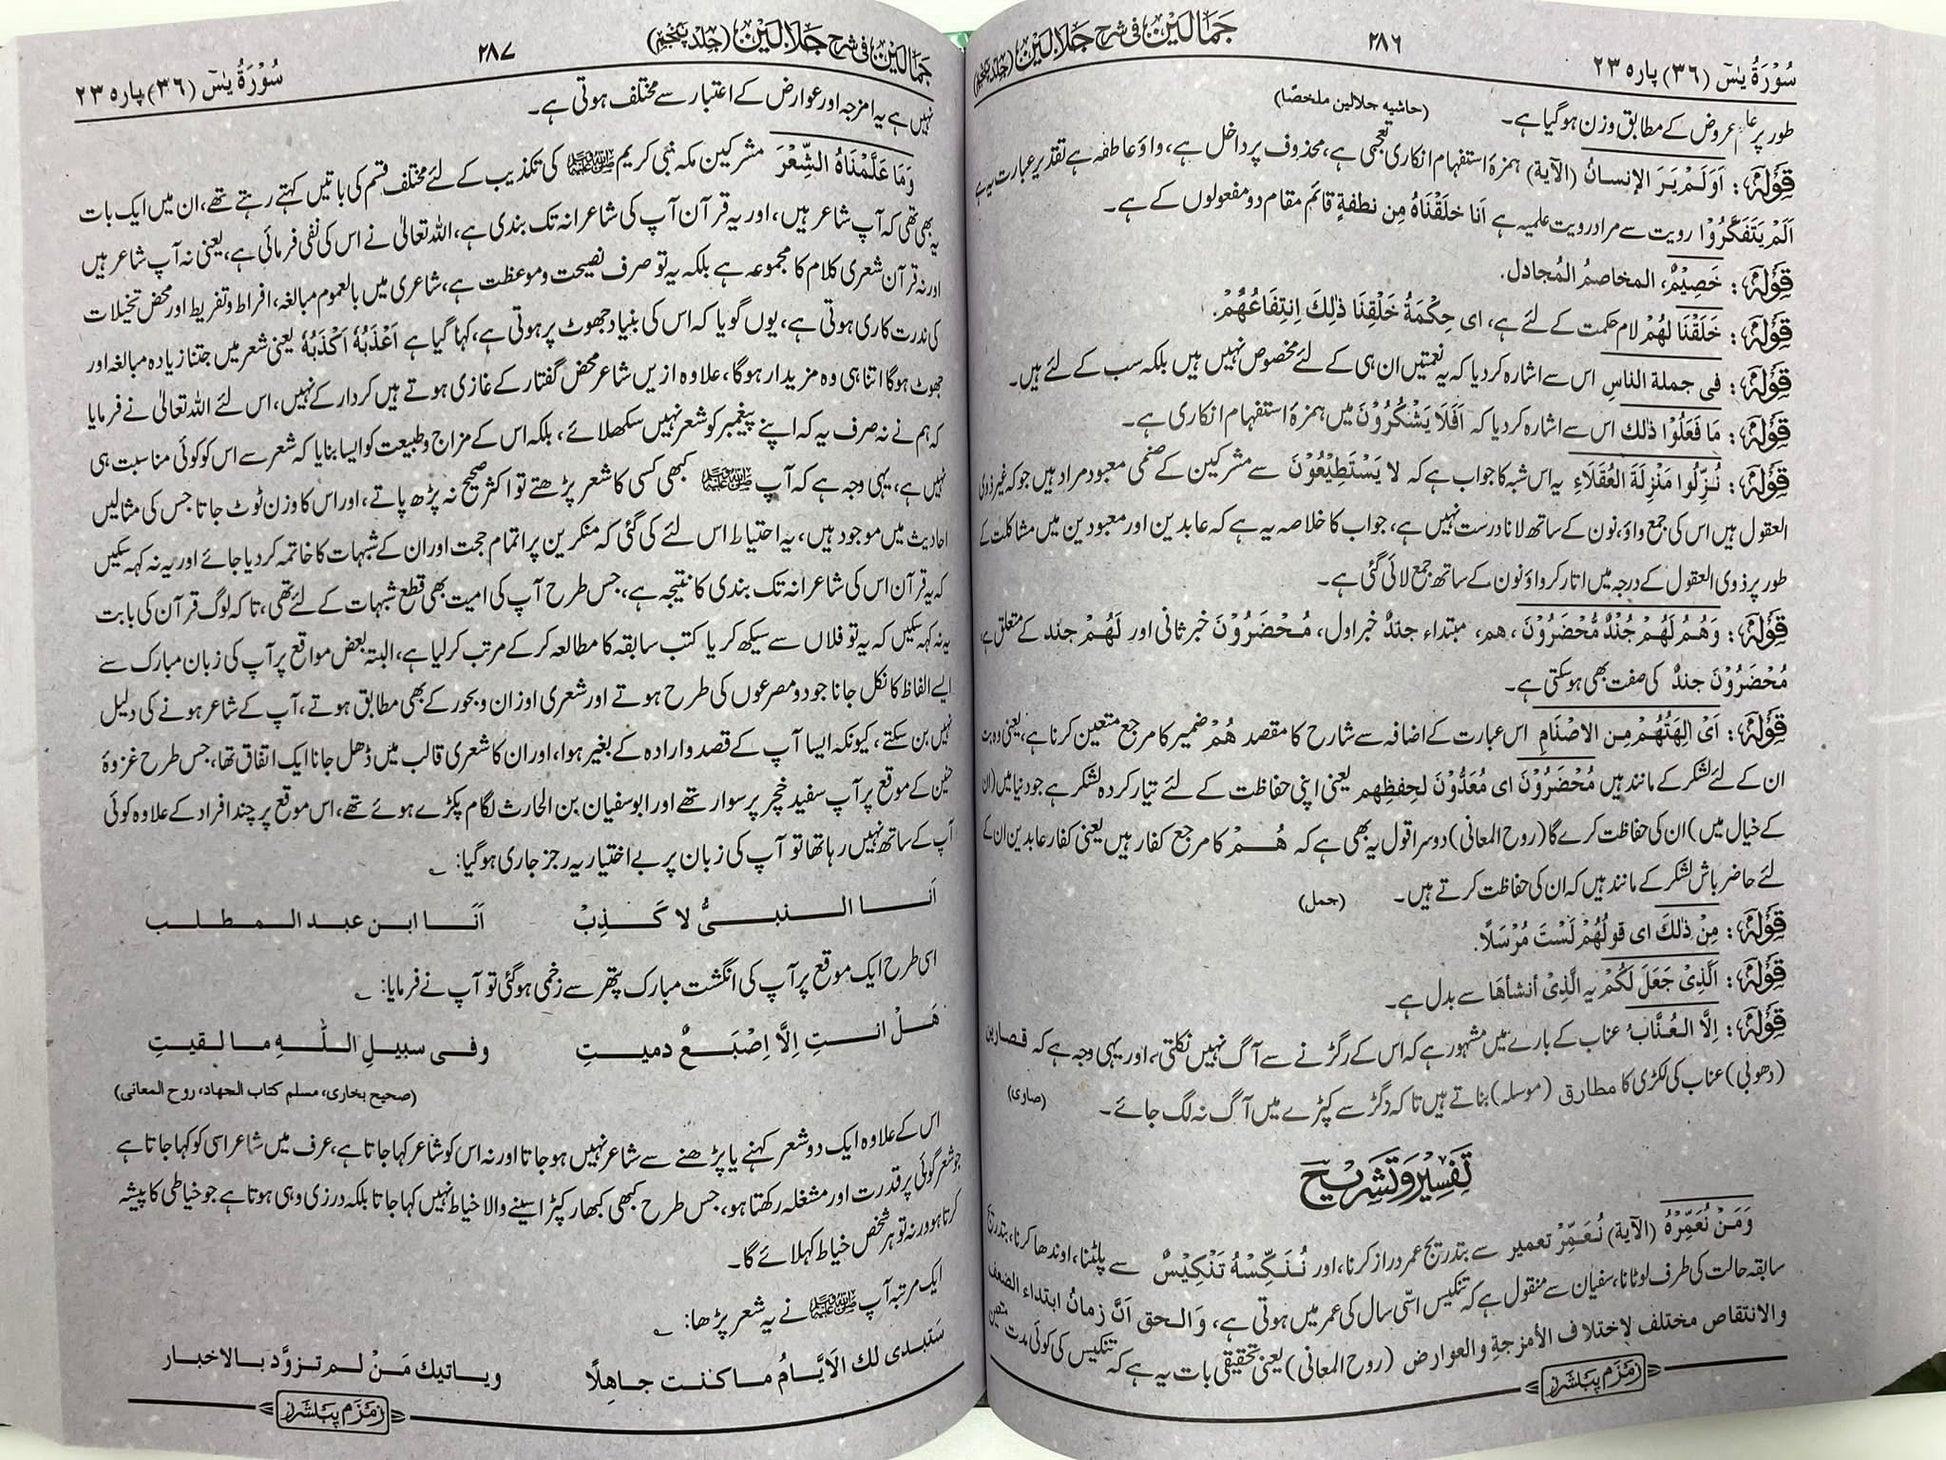 سُوْرَةُ يٰسٓ (٣٦) پارہ ٢٣
٢٨٦
جَمَالَيْن فی شرح جَلَالَيْن (جلد پنجم)
طور پر علم عروض کے مطابق وزن ہو گیا ہے۔ (حاشیہ جلالین ملخصًا)
قولہٗ: اَوَلَمْ یَرَ الإنسانُ (الآیة) ہمزۂ استفہام انکاری تعجبی ہے، محذوف پر داخل ہے، واؤ عاطفہ ہے تقدیر عبارت یہ ہے
اَلَمْ يَتَفَكَّرُوْا رویت سے مراد رویت علمیہ ہے اَنا خلَقْنَاهُ مِن نطفةٍ قائم مقام دو مفعولوں کے ہے۔
قولہٗ: خَصِيْمٌ، المخاصمُ المُجادل.
قولہٗ: خَلَقْنَا لهُمْ لام حکمت کے لئے ہے، ای حِكْمَةُ خَلْقِنَا ذٰلِكَ اِنتِفَاعُهُمْ.
قولہٗ: فی جملة الناسِ اس سے اشارہ کر دیا کہ یہ نعمتیں ان ہی کے لئے مخصوص نہیں ہیں بلکہ سب کے لئے ہیں۔
قولہٗ: مَا فَعَلُوْا ذٰلك اس سے اشارہ کر دیا کہ اَفَلَا يَشْكُرُوْنَ میں ہمزۂ استفہام انکاری ہے۔
قولہٗ: نُزِّلُوا مَنْزِلَةَ العُقَلَاءِ یہ اس شبہ کا جواب ہے کہ لا يَسْتَطِيْعُوْنَ سے مشرکین کے صنمی معبود مراد ہیں جو کہ غیر ذوی
العقول ہیں اس کی جمع واؤ، نون کے ساتھ لانا درست نہیں ہے، جواب کا خلاصہ یہ ہے کہ عابدین اور معبودین میں مشاکلت کے
طور پر ذوی العقول کے درجہ میں اتار کر واؤ نون کے ساتھ جمع لائی گئی ہے۔
قولہٗ: وَهُمْ لَهُمْ جُنْدٌ مُّحْضَرُوْنَ، هم، مبتداء جندٌ خبر اول، مُحْضَرُوْنَ خبر ثانی اور لَهُمْ جند کے متعلق ہے،
مُحْضَرُوْنَ جندٌ کی صفت بھی ہو سکتی ہے۔
قولہٗ: اَیْ اٰلِهَتُهُمْ مِن الاصْنَامِ اس عبارت کے اضافہ سے شارح کا مقصد هُمْ ضمیر کا مرجع متعین کرنا ہے، یعنی وہ بت
ان کے لئے لشکر کے مانند ہیں مُحْضَرُوْنَ ای مُعَدُّوْنَ لحِفظِهِم یعنی اپنی حفاظت کے لئے تیار کردہ لشکر ہے جو دنیا میں (ان
کے خیال میں) ان کی حفاظت کرے گا (روح المعانی) دوسرا قول یہ بھی ہے کہ هُمْ کا مرجع کفار ہیں یعنی کفار عابدین ان کے
لئے حاضر باش لشکر کے مانند ہیں کہ ان کی حفاظت کرتے ہیں۔ (جمل)
قولہٗ: مِنْ ذٰلكَ ای قولُهُمْ لَسْتَ مُرْسَلًا.
قولہٗ: الَّذِیْ جَعَلَ لَكُمْ یہ الَّذِیْ أنشأها سے بدل ہے۔
قولہٗ: اِلَّا العُنَّابُ عناب کے بارے میں مشہور ہے کہ اس کے رگڑنے سے آگ نہیں نکلتی، اور یہی وجہ ہے کہ قصارین
(دھوبی) عناب کی لکڑی کا مطارق (موسلہ) بناتے ہیں تاکہ رگڑ سے کپڑے میں آگ نہ لگ جائے۔ (صاوی)
تَفْسِيْر وَتَشْرِيْح
وَمَنْ نُعَمِّرْهُ (الآیة) نُعَمِّرْ تعمیر سے بتدریج عمر دراز کرنا، اور نُنَكِّسْهُ تَنْكِيْسٌ سے پلٹنا، اوندھا کرنا، بتدریج
سابقہ حالت کی طرف لوٹانا، سفیان سے منقول ہے کہ تنکیس اسّی سال کی عمر میں ہوتی ہے، وَالحق اَنَّ زمانُ ابتداء الضعف
والانتقاص مختلف لاختلاف الأمزجةِ والعوارض (روح المعانی) یعنی تحقیقی بات یہ ہے کہ تنکیس کی کوئی مدت متعین
زمزم پبلشرز
جَمَالَيْن فی شرح جَلَالَيْن (جلد پنجم)
٢٨٧
سُوْرَةُ يٰسٓ (٣٦) پارہ ٢٣
نہیں ہے یہ امزجہ اور عوارض کے اعتبار سے مختلف ہوتی ہے۔
وَمَا عَلَّمْنَاهُ الشِّعْرَ مشرکین مکہ نبی کریم ﷺ کی تکذیب کے لئے مختلف قسم کی باتیں کہتے رہتے تھے، ان میں ایک بات
یہ بھی تھی کہ آپ شاعر ہیں، اور یہ قرآن آپ کی شاعرانہ تک بندی ہے، اللہ تعالیٰ نے اس کی نفی فرمائی ہے، یعنی نہ آپ شاعر ہیں
اور نہ قرآن شعری کلام کا مجموعہ ہے بلکہ یہ تو صرف نصیحت و موعظت ہے، شاعری میں بالعموم مبالغہ، افراط و تفریط اور محض تخیلات
کی ندرت کاری ہوتی ہے، یوں گویا کہ اس کی بنیاد جھوٹ پر ہوتی ہے، کہا گیا ہے اَعْذَبُهٗ اَكْذَبُهٗ یعنی شعر میں جتنا زیادہ مبالغہ اور
جھوٹ ہوگا اتنا ہی وہ مزیدار ہوگا، علاوہ ازیں شاعر محض گفتار کے غازی ہوتے ہیں کردار کے نہیں، اس لئے اللہ تعالیٰ نے فرمایا
کہ ہم نے نہ صرف یہ کہ اپنے پیغمبر کو شعر نہیں سکھلائے، بلکہ اس کے مزاج و طبیعت کو ایسا بنایا کہ شعر سے اس کو کوئی مناسبت ہی
نہیں ہے، یہی وجہ ہے کہ آپ ﷺ کبھی کسی کا شعر پڑھتے تو اکثر صحیح نہ پڑھ پاتے، اور اس کا وزن ٹوٹ جاتا جس کی مثالیں
احادیث میں موجود ہیں، یہ احتیاط اس لئے کی گئی کہ منکرین پر اتمام حجت اور ان کے شبہات کا خاتمہ کر دیا جائے اور یہ نہ کہہ سکیں
کہ یہ قرآن اس کی شاعرانہ تک بندی کا نتیجہ ہے، جس طرح آپ کی امیت بھی قطع شبہات کے لئے تھی، تاکہ لوگ قرآن کی بابت
یہ نہ کہہ سکیں کہ یہ تو فلاں سے سیکھ کر یا کتب سابقہ کا مطالعہ کر کے مرتب کر لیا ہے، البتہ بعض مواقع پر آپ کی زبان مبارک سے
ایسے الفاظ کا نکل جانا جو دو مصرعوں کی طرح ہوتے اور شعری اوزان و بحور کے بھی مطابق ہوتے، آپ کے شاعر ہونے کی دلیل
نہیں بن سکتے، کیونکہ ایسا آپ کے قصد و ارادہ کے بغیر ہوا، اور ان کا شعری قالب میں ڈھل جانا ایک اتفاق تھا، جس طرح غزوۂ
حنین کے موقع پر آپ سفید خچر پر سوار تھے اور ابوسفیان بن الحارث لگام پکڑے ہوئے تھے، اس موقع پر چند افراد کے علاوہ کوئی
آپ کے ساتھ نہیں رہا تھا تو آپ کی زبان پر بے اختیار یہ رجز جاری ہو گیا:
اَنَا النبیُّ لا كَذِبْ اَنَا ابن عبد المطلب
اسی طرح ایک موقع پر آپ کی انگشت مبارک پتھر سے زخمی ہو گئی تو آپ نے فرمایا:
هَلْ انتِ اِلَّا اِصْبَعٌ دميتِ وفی سبيلِ اللّٰهِ ما لقيتِ
(صحیح بخاری، مسلم کتاب الجہاد، روح المعانی)
اس کے علاوہ ایک دو شعر کہنے یا پڑھنے سے شاعر نہیں ہو جاتا اور نہ اس کو شاعر کہا جاتا ہے، عرف میں شاعر اسی کو کہا جاتا ہے
جو شعر گوئی پر قدرت اور مشغلہ رکھتا ہو، جس طرح کبھی کبھار کپڑا سینے والا خیاط نہیں کہا جاتا بلکہ درزی وہی ہوتا ہے جو خیاطی کا پیشہ
کرتا ہو ورنہ تو ہر شخص خیاط کہلائے گا۔
ایک مرتبہ آپ ﷺ نے یہ شعر پڑھا:
سَتبدی لك الَايَّامُ ما كنت جاهِلًا وياتيك مَنْ لم تزوَّد بالاخبار
زمزم پبلشرز